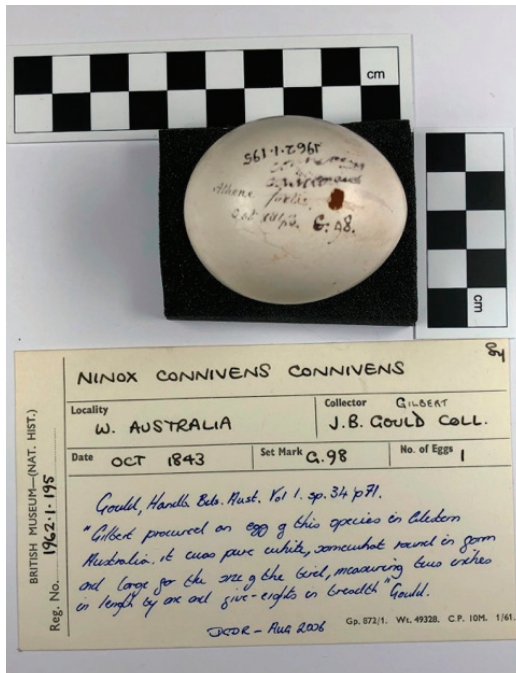 cm
1962.1.195
Athene fortis.
G.98.
cm
NINOX CONNIVENS CONNIVENS
Locality
W. AUSTRALIA
Collector GILBERT
J.B. GOULD COLL.
Date OCT 1843
Set Mark G.98
No. of Eggs 1
BRITISH MUSEUM—(NAT. HIST.)
Reg. No. 1962.1.195
Gould, Handb. Bds. Aust. Vol 1. sp. 34 p71.
"Gilbert procured an egg of this species in Western
Australia. it was pure white, somewhat round in form
and large for the size of the bird, measuring two inches
in length by one and five-eights in breadth" Gould.
Aug 2006
Gp. 872/1. Wt. 49328. C.P. 10M. 1/61.